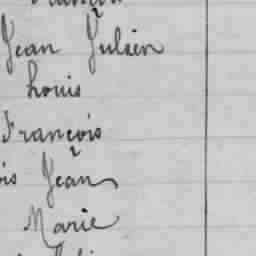 Jean Julien
Louis
François
is Jean
Marie